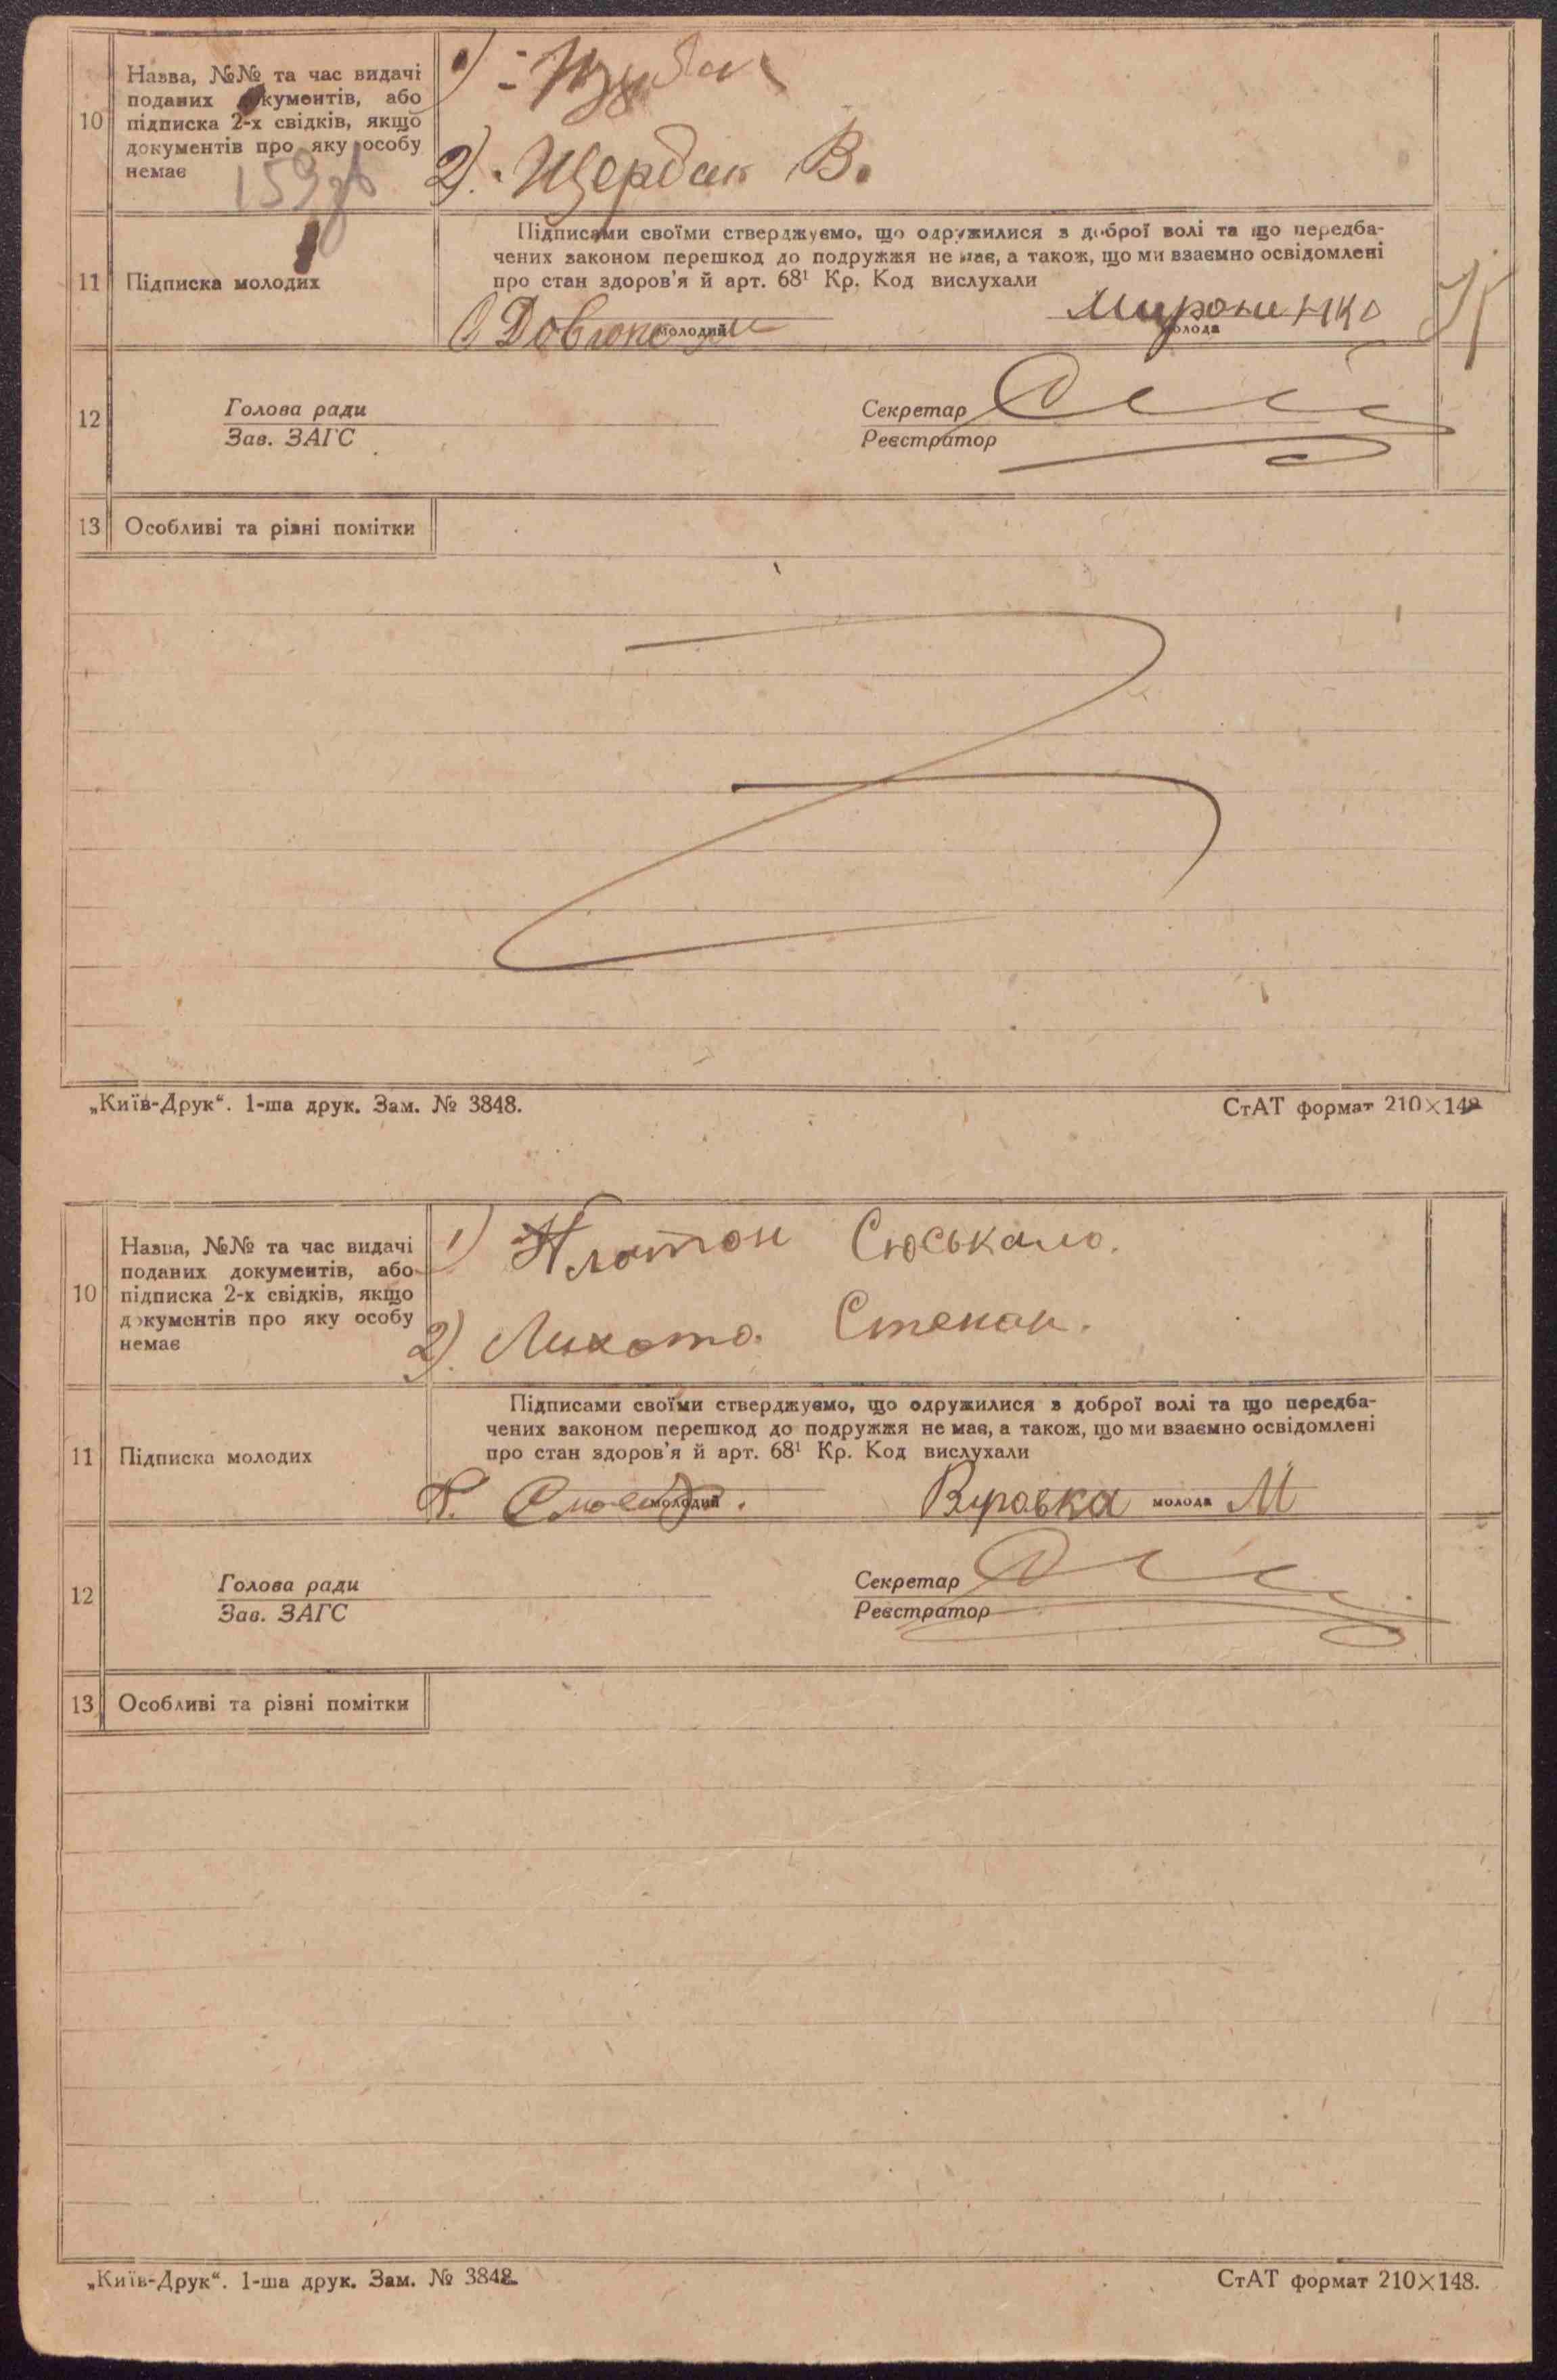 10
Назва, №№ та час видачі
поданих документів, або
підписка 2-х свідків, якщо
документів про яку особу
немає
1)
2). Щербак В.
11
Підписка молодих
Підписами своїми стверджуємо, що одружилися з доброї волі та що передба-
чених законом перешкод до подружжя не має, а також, що ми взаємно освідомлені
про стан здоров'я й арт. 68¹ Кр. Код вислухали
молодий
молода
12
Голова ради
Зав. ЗАГС
Секретар
Реєстратор
13
Особливі та різні помітки
„Київ-Друк“. 1-ша друк. Зам. № 3848.
СтАТ формат 210×148
10
Назва, №№ та час видачі
поданих документів, або
підписка 2-х свідків, якщо
документів про яку особу
немає
1) Платон Сюськало.
2). Лихота Степан.
11
Підписка молодих
Підписами своїми стверджуємо, що одружилися з доброї волі та що передба-
чених законом перешкод до подружжя не має, а також, що ми взаємно освідомлені
про стан здоров'я й арт. 68¹ Кр. Код вислухали
молодий
молода М
12
Голова ради
Зав. ЗАГС
Секретар
Реєстратор
13
Особливі та різні помітки
„Київ-Друк“. 1-ша друк. Зам. № 3848.
СтАТ формат 210×148.